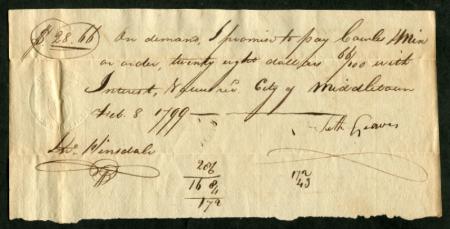 $28.66 On demand, I promise to pay Cowles & Min
or order, twenty eight dollars 66/100 with
Interest, City of Middletown
Feb. 8 1799
Seth Graves
Winsdale
206
16 8
172
172
43